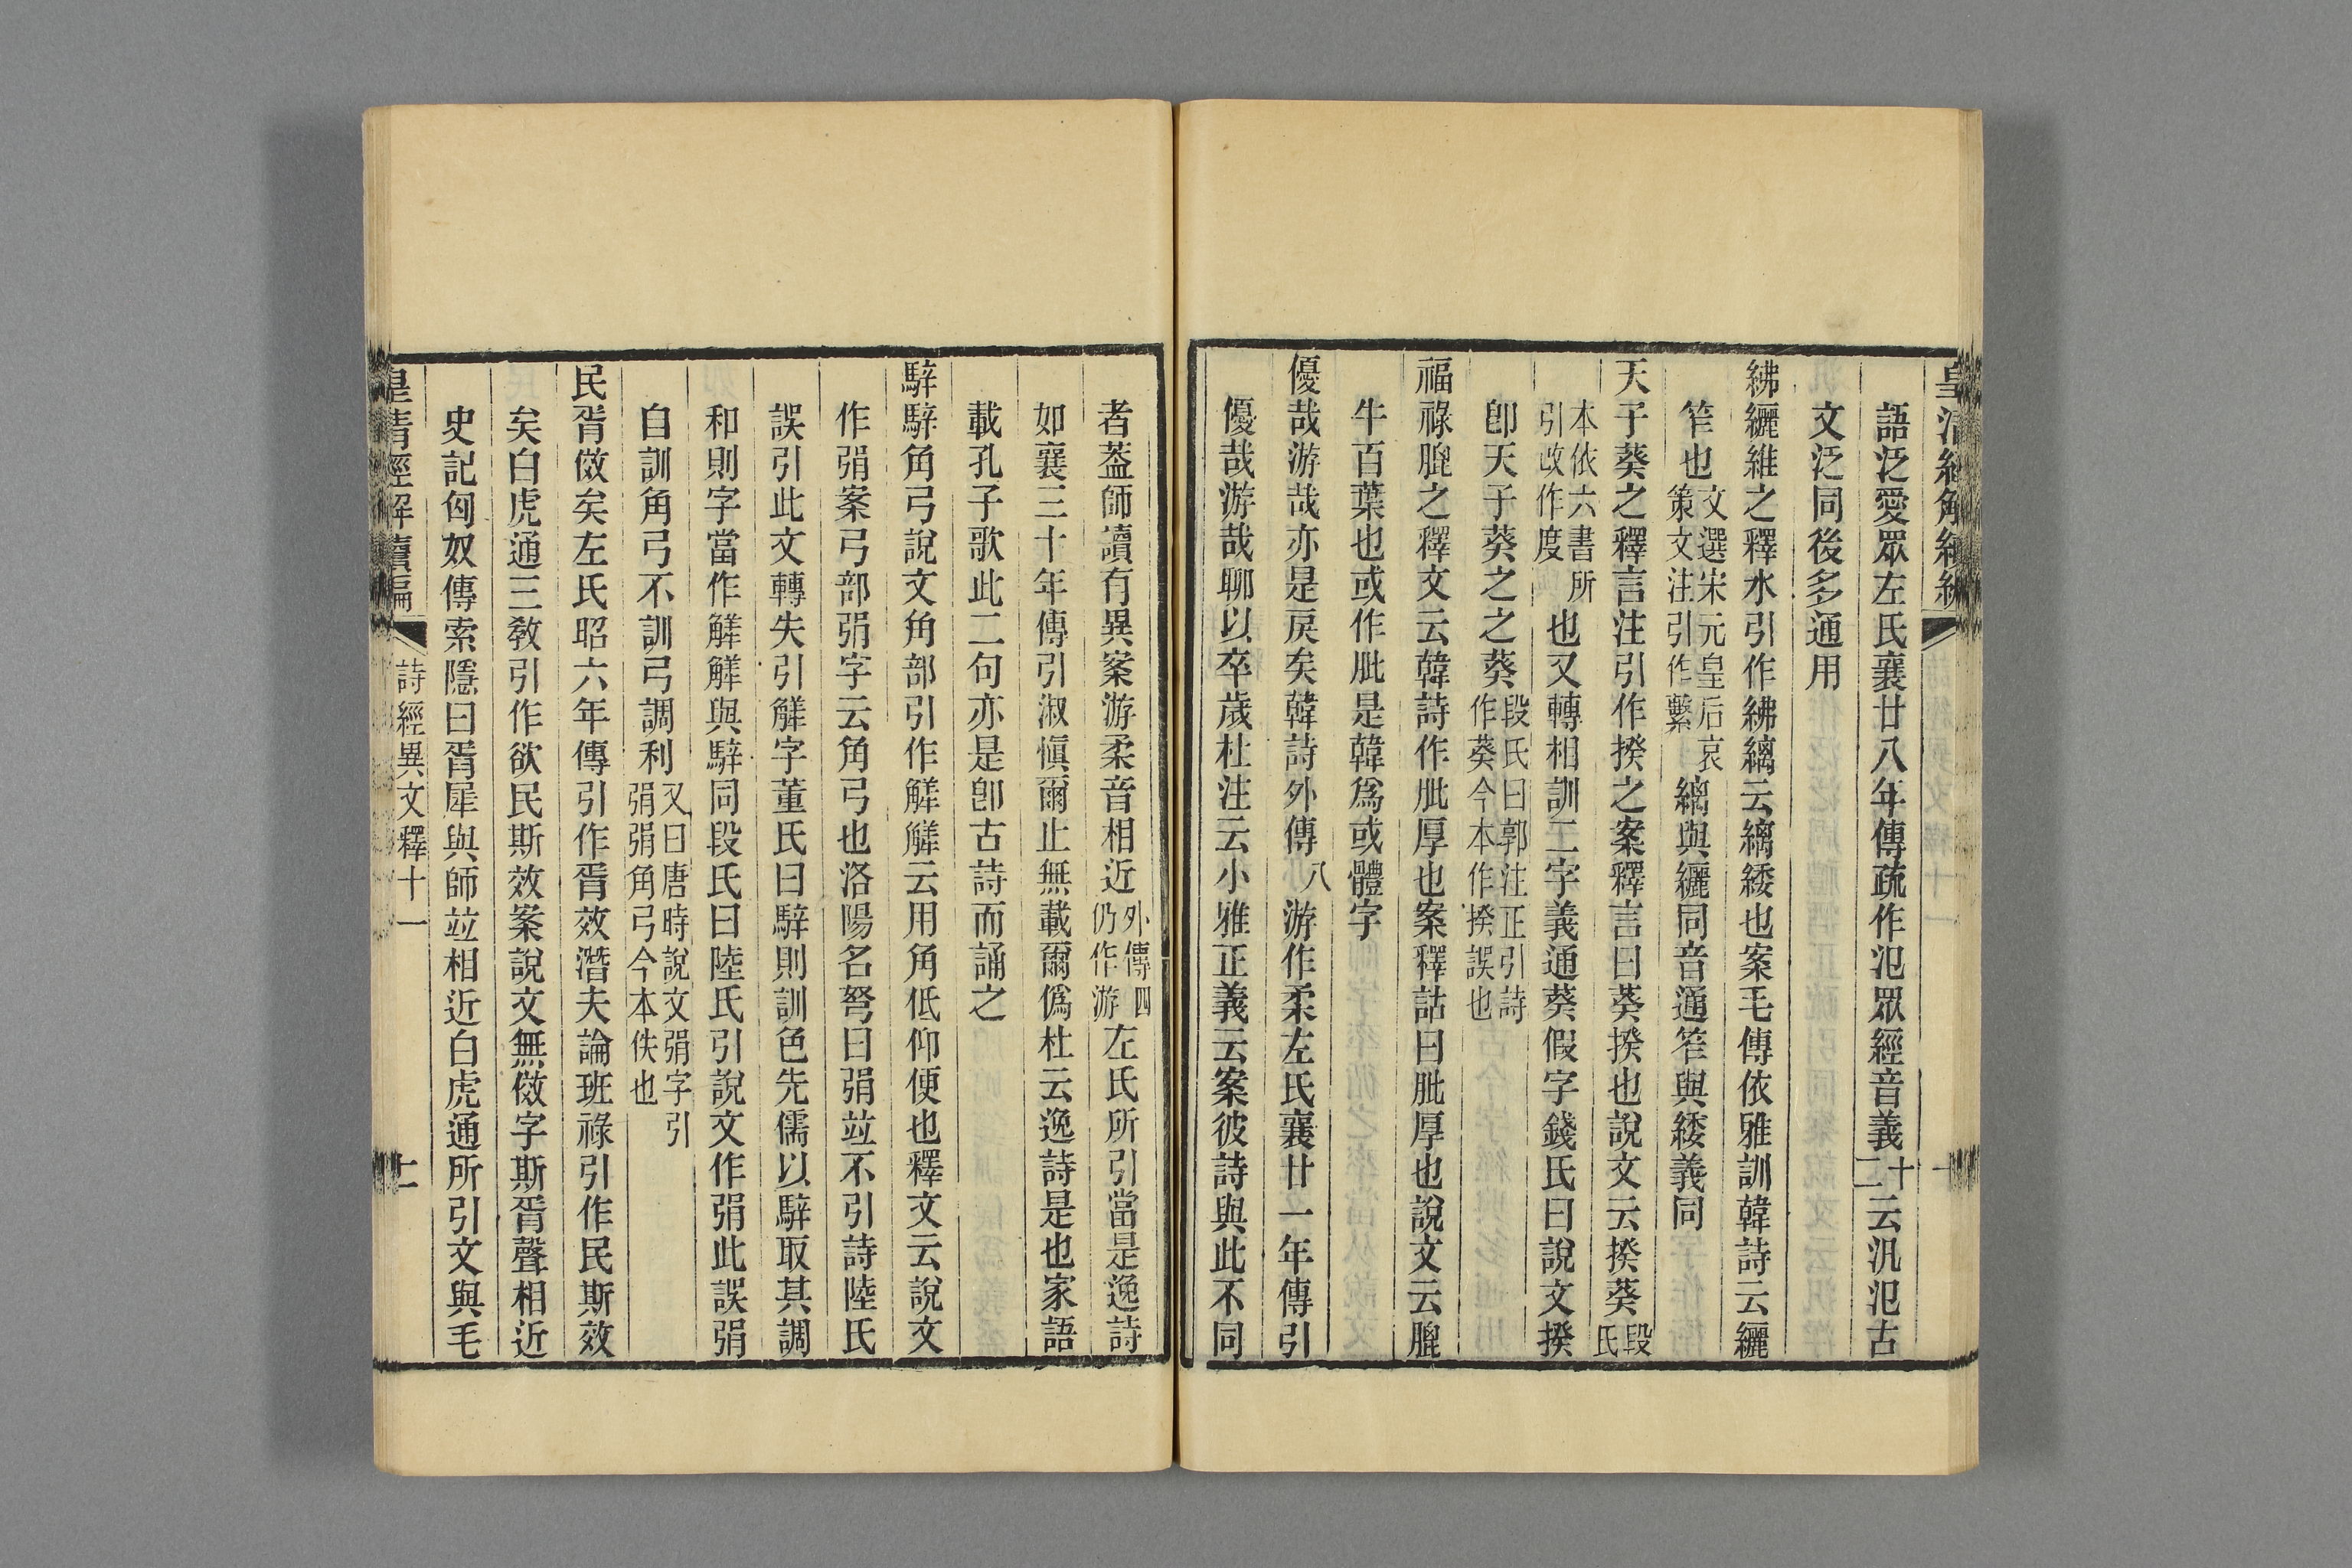 皇清經解續編
語泛愛眾左氏襄廿八年傳疏作氾眾經音義十二云汎氾古
文泛同後多通用
紼纚維之釋水引作紼縭云縭緌也案毛傳依雅訓韓詩云纚
笮也文選宋元皇后哀策文注引作繫縭與纚同音通笮與緌義同
天子葵之釋言注引作揆之案釋言曰葵揆也說文云揆葵段氏
本依六書所引改作度也又轉相訓二字義通葵假字錢氏曰說文揆
卽天子葵之之葵段氏曰郭注正引詩作葵今本作揆誤也
福祿膍之釋文云韓詩作肶厚也案釋詁曰肶厚也說文云膍
牛百葉也或作肶是韓爲或體字
優哉游哉亦是戾矣韓詩外傳八游作柔左氏襄廿一年傳引
優哉游哉聊以卒歲杜注云小雅正義云案彼詩與此不同
者蓋師讀有異案游柔音相近外傳四仍作游左氏所引當是逸詩
如襄三十年傳引淑愼爾止無載爾僞杜云逸詩是也家語
載孔子歌此二句亦是卽古詩而誦之
騂騂角弓說文角部引作觲觲云用角低仰便也釋文云說文
作弲案弓部弲字云角弓也洛陽名弩曰弲竝不引詩陸氏
誤引此文轉失引觲字董氏曰騂則訓色先儒以騂取其調
和則字當作觲觲與騂同段氏曰陸氏引說文作弲此誤弲
自訓角弓不訓弓調利又曰唐時說文弲字引弲弲角弓今本佚也
民胥傚矣左氏昭六年傳引作胥效潛夫論班祿引作民斯效
矣白虎通三教引作欲民斯效案說文無傚字斯胥聲相近
史記匈奴傳索隱曰胥犀與師竝相近白虎通所引文與毛
皇清經解續編 詩經異文釋十一